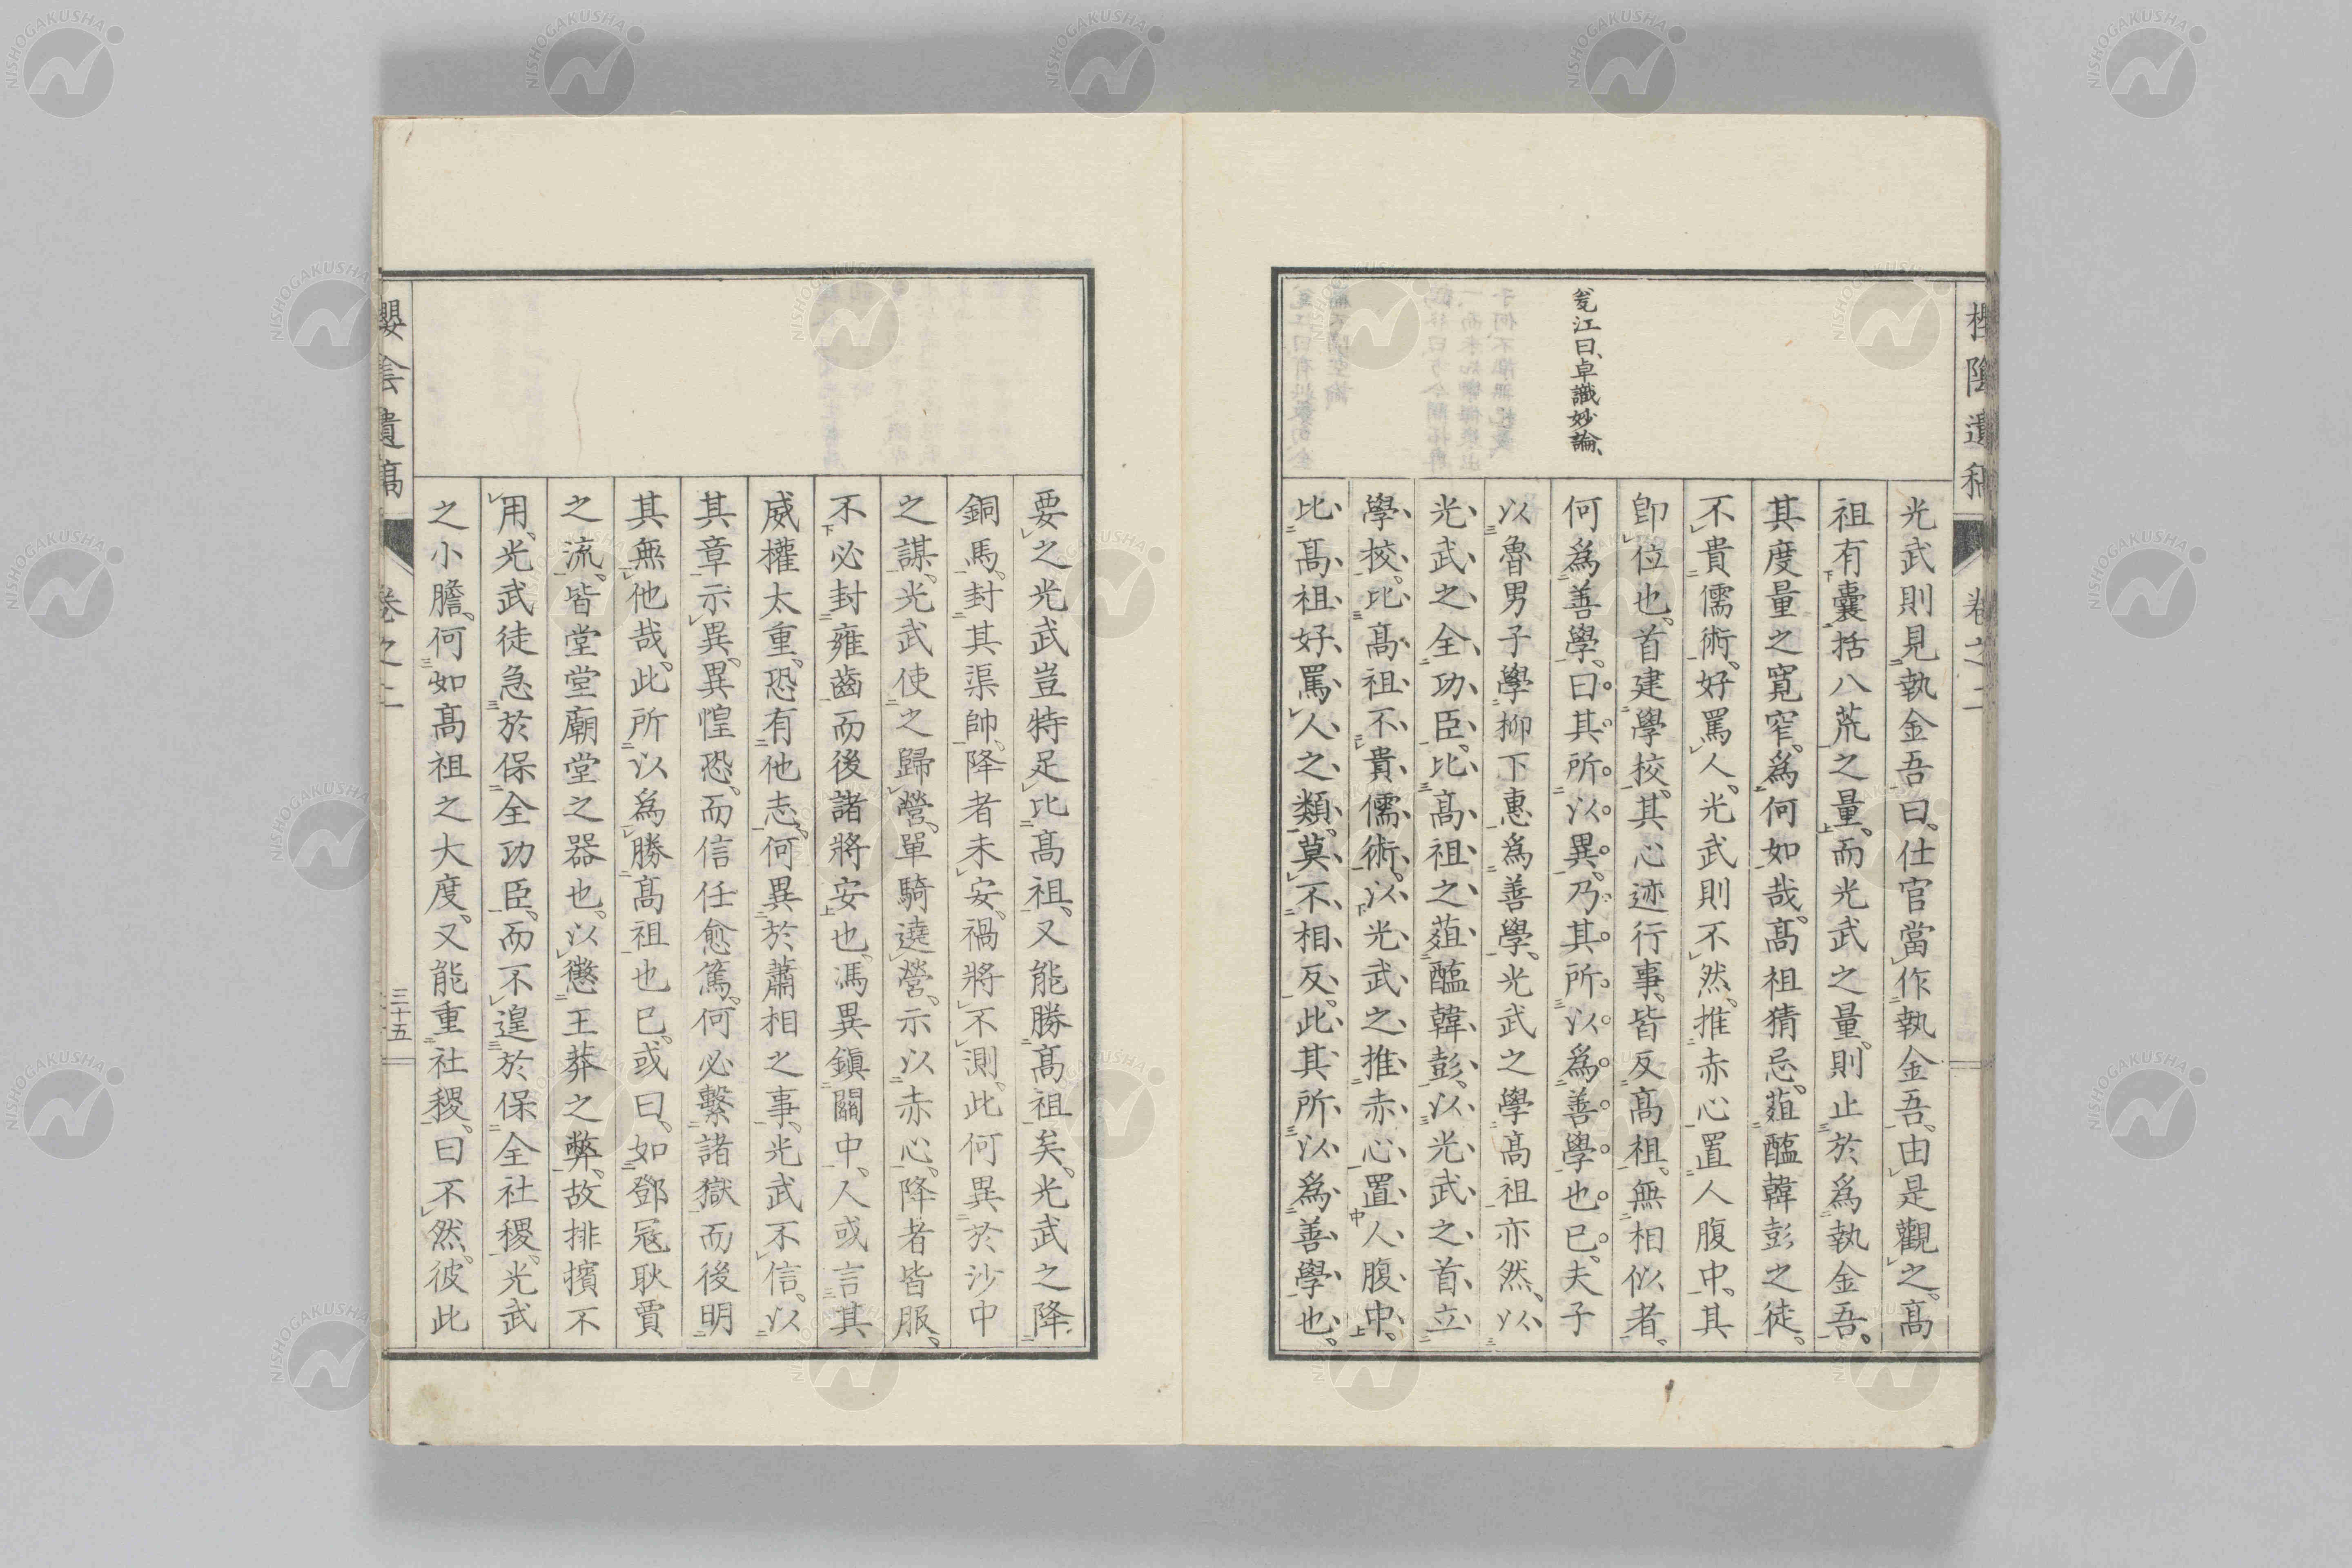 光武則見執金吾曰。仕官當作執金吾。由是觀之。髙
祖有囊括八荒之量。而光武之量。則止於爲執金吾。
其度量之寛窄。爲何如哉。髙祖猜忌。葅醢韓彭之徒。
不貴儒術。好罵人。光武則不然。推赤心置人腹中。其
卽位也。首建學校。其心迹行事。皆反髙祖。無相似者。
何爲善學。曰其所以異。乃其所以爲善學也已。夫子
以魯男子學柳下惠爲善學。光武之學髙祖亦然。以
光武之全功臣。比髙祖之葅醢韓彭。以光武之首立
學校。比髙祖不貴儒術。以光武之推赤心置人腹中。
比髙祖好罵人之類。莫不相反。此其所以爲善學也。
江曰、卓識妙論、
卷之二
要之光武豈特足比髙祖。又能勝髙祖矣。光武之降
銅馬。封其渠帥。降者未安。禍將不測。此何異於沙中
之謀。光武使之歸營。單騎遶營。示以赤心。降者皆服。
不必封雍齒而後諸將安也。馮異鎭關中、人或言其
威權太重。恐有他志。何異於蕭相之事。光武不信。以
其章示異。異惶恐。而信任愈篤。何必繫諸獄而後明
其無他哉。此所以爲勝髙祖也已。或曰。如鄧冦耿賈
之流。皆堂堂廟堂之器也。以懲王莽之弊。故排擯不
用。光武徒急於保全功臣。而不遑於保全社稷。光武
之小膽。何如髙祖之大度。又能重社稷。曰不然。彼此
卷之二
三十五
NISHOGAKUSHA